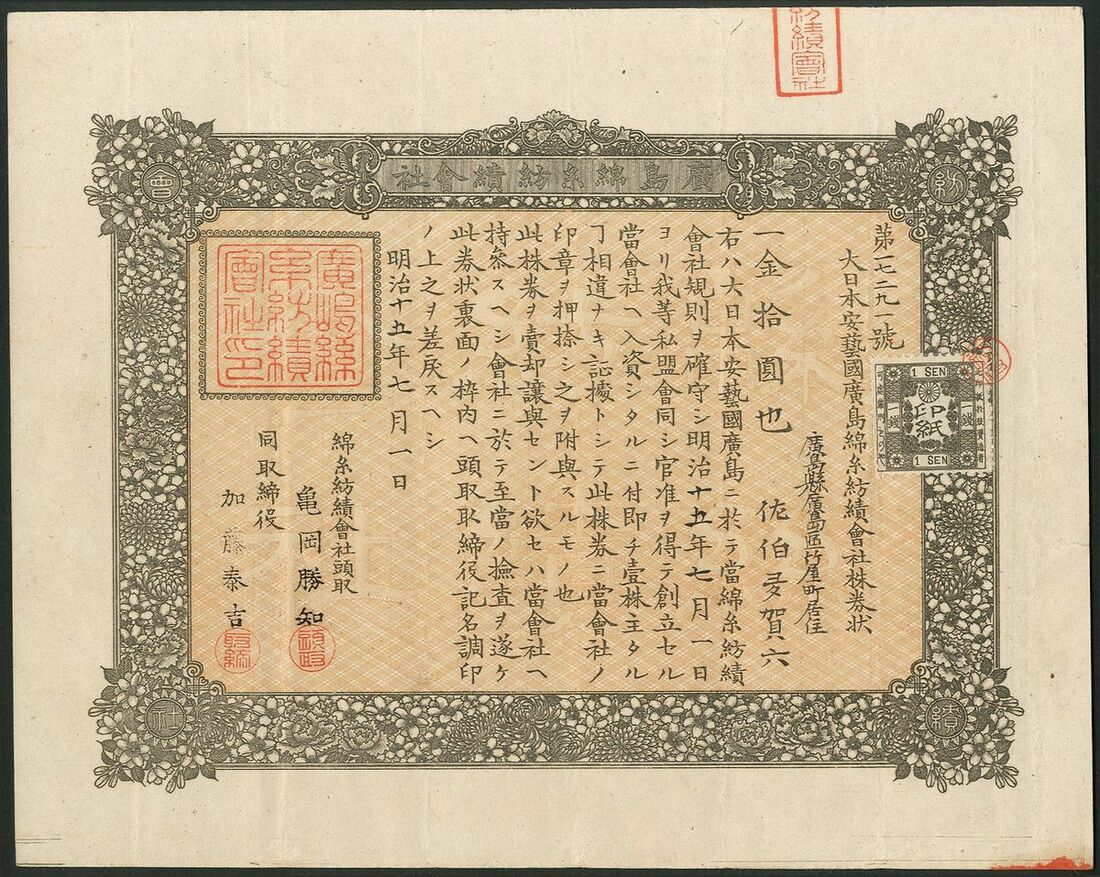 紡績會社
廣島綿糸紡績會社
紡
績
會
社
第一七二九一號
大日本安藝國廣島綿糸紡績會社株券状
廣島縣廣島區竹屋町居住
一金拾圓也 佐伯多賀六
右ハ大日本安藝國廣島ニ於テ當綿糸紡績
會社規則ヲ確守シ明治十五年七月一日
ヨリ我等私盟會同シ官准ヲ得テ創立セル
當會社ヘ入資シタルニ付即チ壹株主タル
丁相違ナキ証據トシテ此株券ニ當會社ノ
印章ヲ押捺シ之ヲ附與スルモノ也
此株券ヲ賣却讓與セント欲セハ當會社ヘ
持參スヘシ會社ニ於テ至當ノ撿査ヲ遂ケ
此券状裏面ノ枠内ヘ頭取取締役記名調印
ノ上之ヲ差戻スヘシ
明治十五年七月一日
綿糸紡績會社頭取
亀岡勝知
同取締役
加藤泰吉
廣嶋綿
糸紡績
會社印
1 SEN
一錢
印紙
一錢
1 SEN